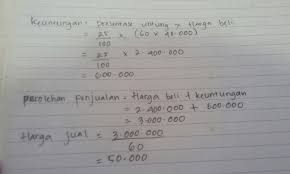 Keuntungan = Persentase untung x Harga beli
= 25/100 x (60 x 40.000)
= 25/100 x 2.400.000
= 600.000
perolehan penjualan = Harga beli + keuntungan
= 2.400.000 + 600.000
= 3.000.000
Harga jual = 3.000.000/60
= 50.000